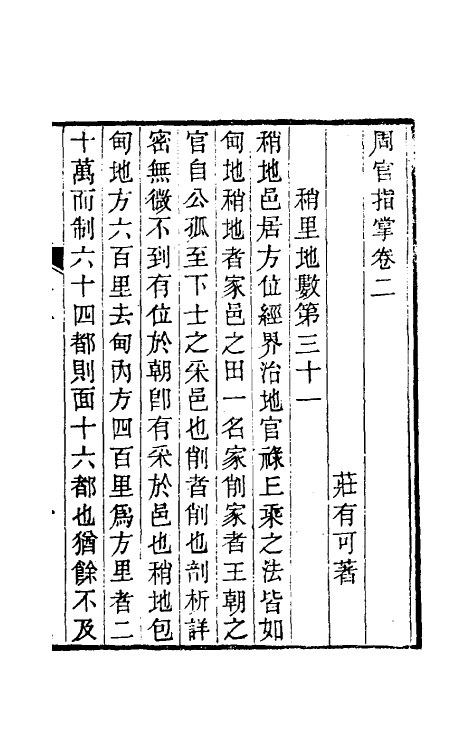 周官指掌卷二
莊有可著
稍里地數第三十一
稍地邑居方位經界治地官祿丘乘之法皆如
甸地稍地者家邑之田一名家削家者王朝之
官自公孤至下士之采邑也削者削也剖析詳
密無微不到有位於朝卽有采於邑也稍地包
甸地方六百里去甸內方四百里爲方里者二
十萬而制六十四都則面十六都也猶餘不及